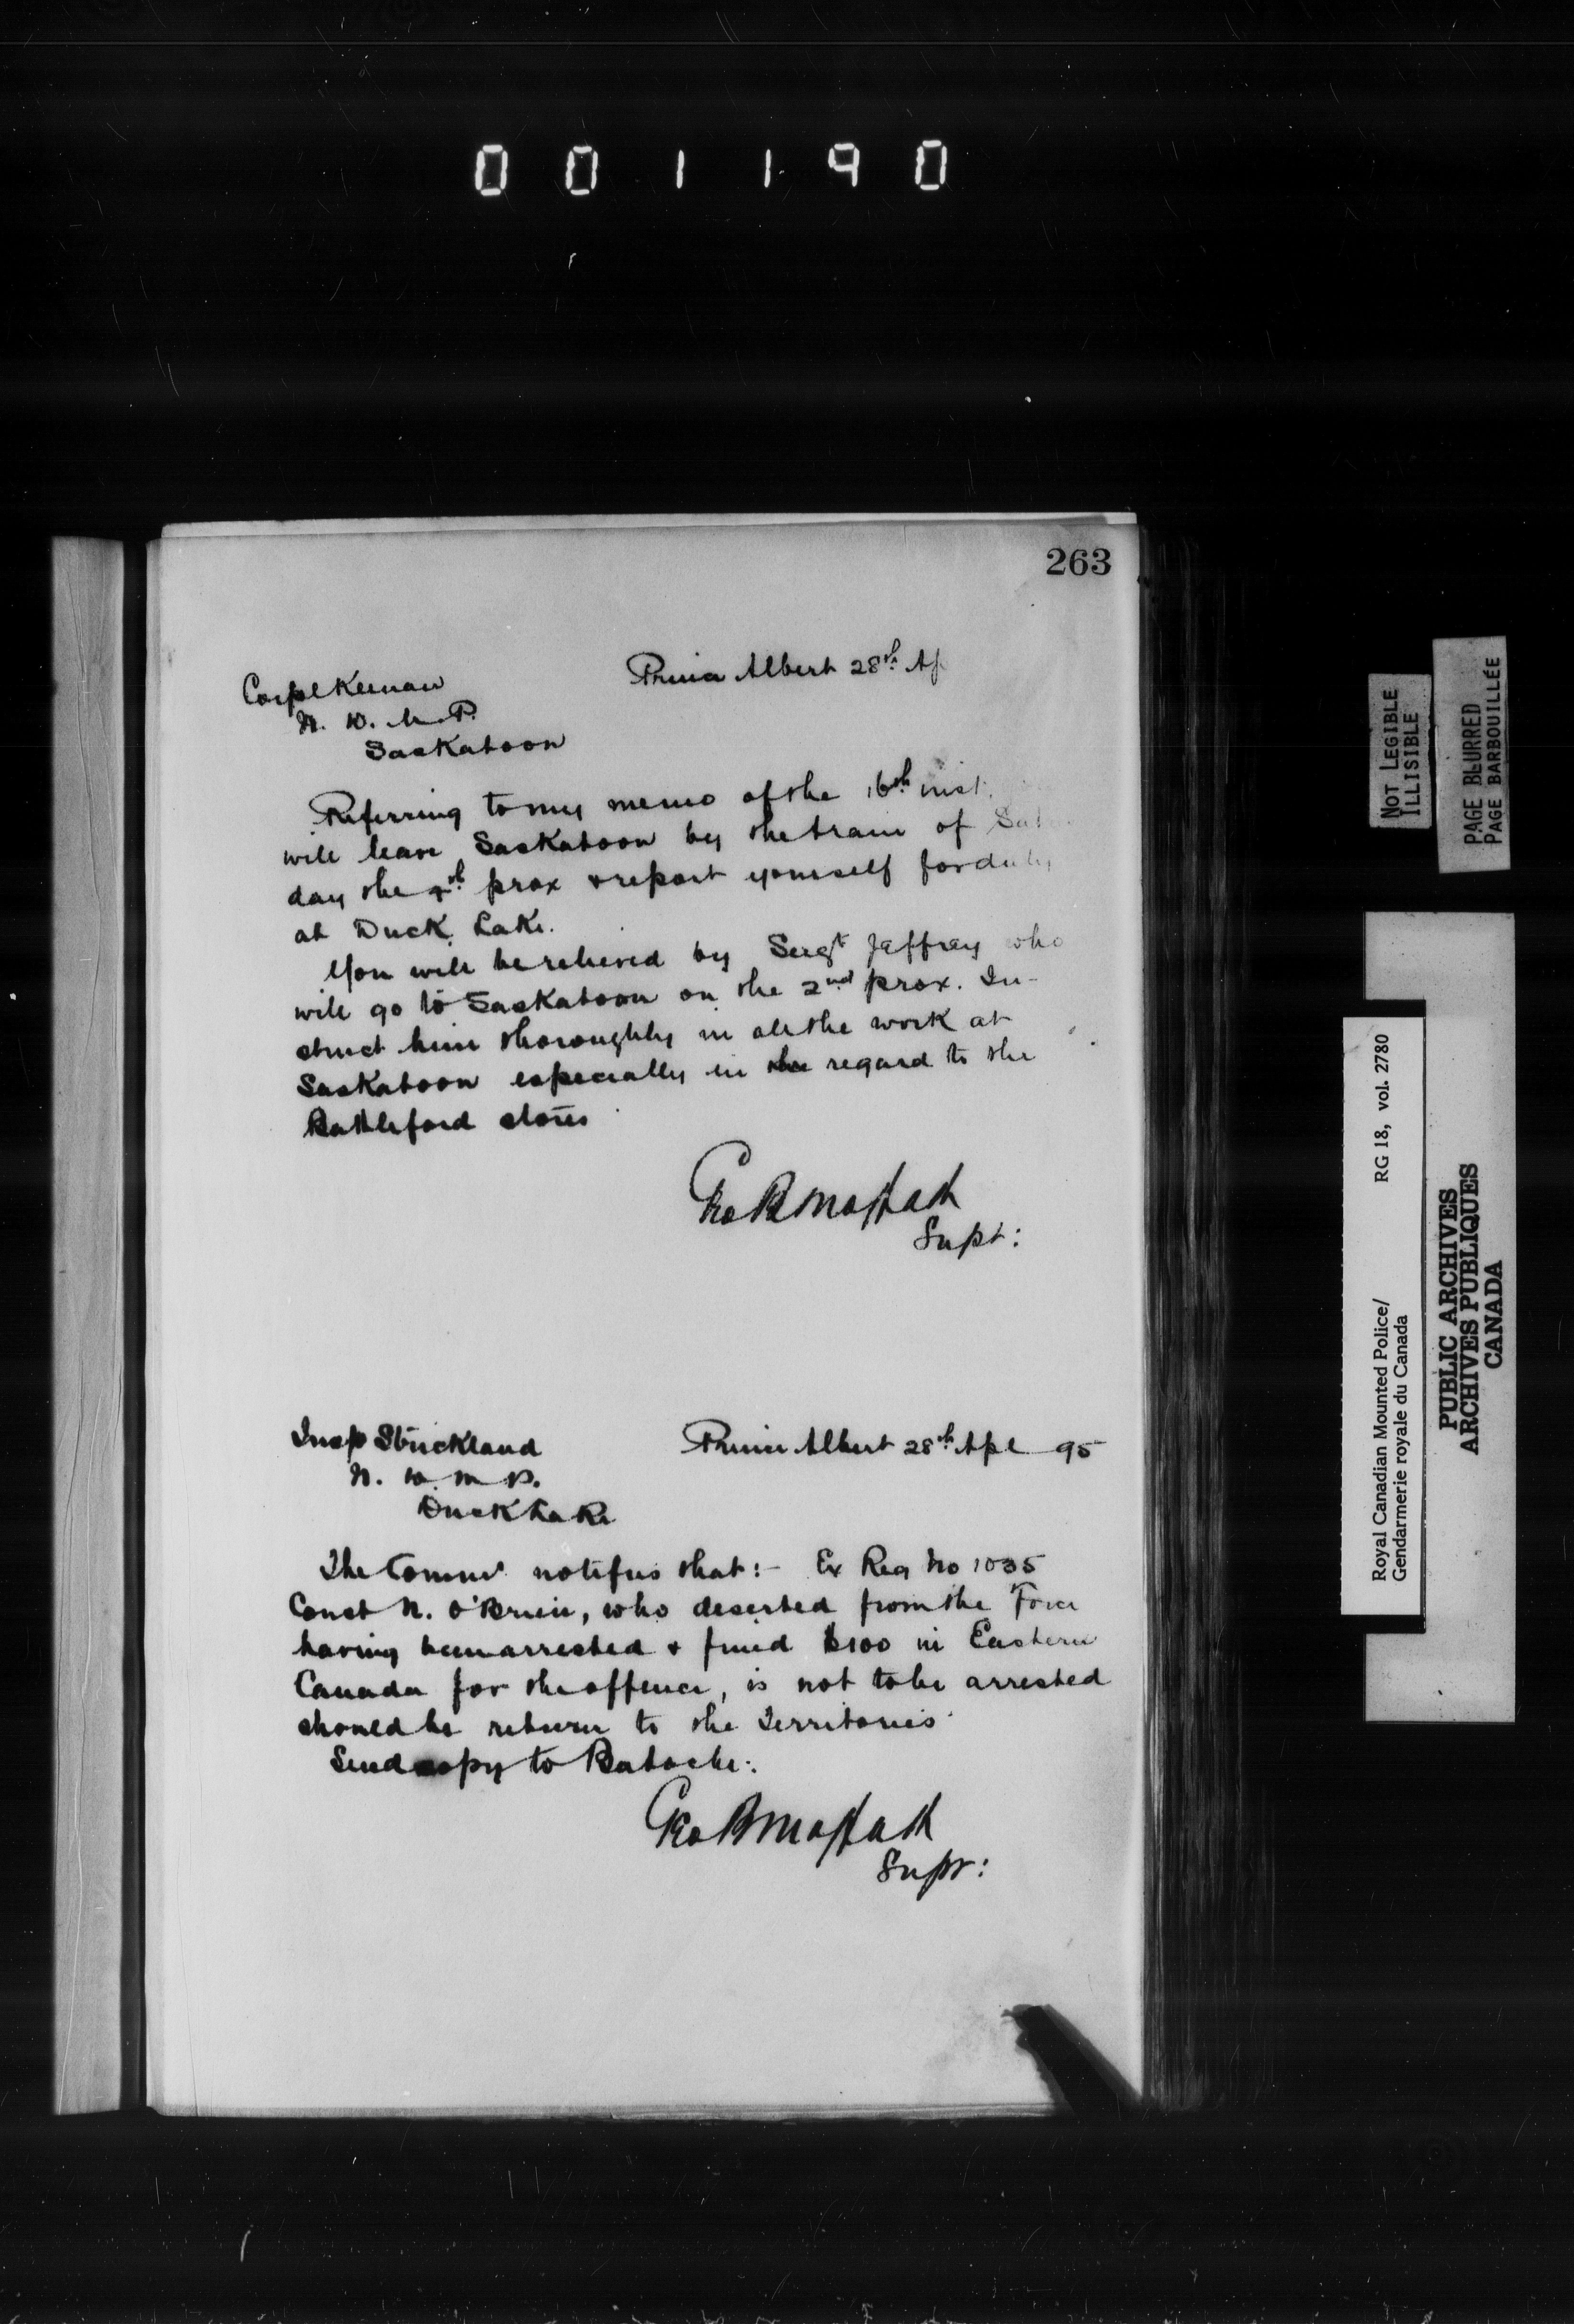 001190
263
Prince Albert 28th Ap
Corpl Keenan
N. W. M. P.
Saskatoon
Referring to my memo of the 16th inst.
will leave Saskatoon by the train of Satur
day the 4th prox & report yourself for duty
at Duck Lake.
You will be relieved by Sergt Jeffrey who
will go to Saskatoon on the 2nd prox. In-
struct him thoroughly in all the work at
Saskatoon especially in regard to the
Battleford stores
Geo B Moffatt
Supt:
Insp Strickland
Prince Albert 28th Apl 95
N. W. M. P.
Duck Lake
The Commr notifies that:- Ex Reg No 1035
Const N. O'Brien, who deserted from the Force
having been arrested & fined $100 in Eastern
Canada for the offence, is not to be arrested
should he return to the Territories
Send copy to Batoche.
Geo B Moffatt
Supt:
NOT LEGIBLE
ILLISIBLE
PAGE BLURRED
PAGE BARBOUILLÉE
Royal Canadian Mounted Police/ RG 18, vol. 2780
Gendarmerie royale du Canada
PUBLIC ARCHIVES
ARCHIVES PUBLIQUES
CANADA